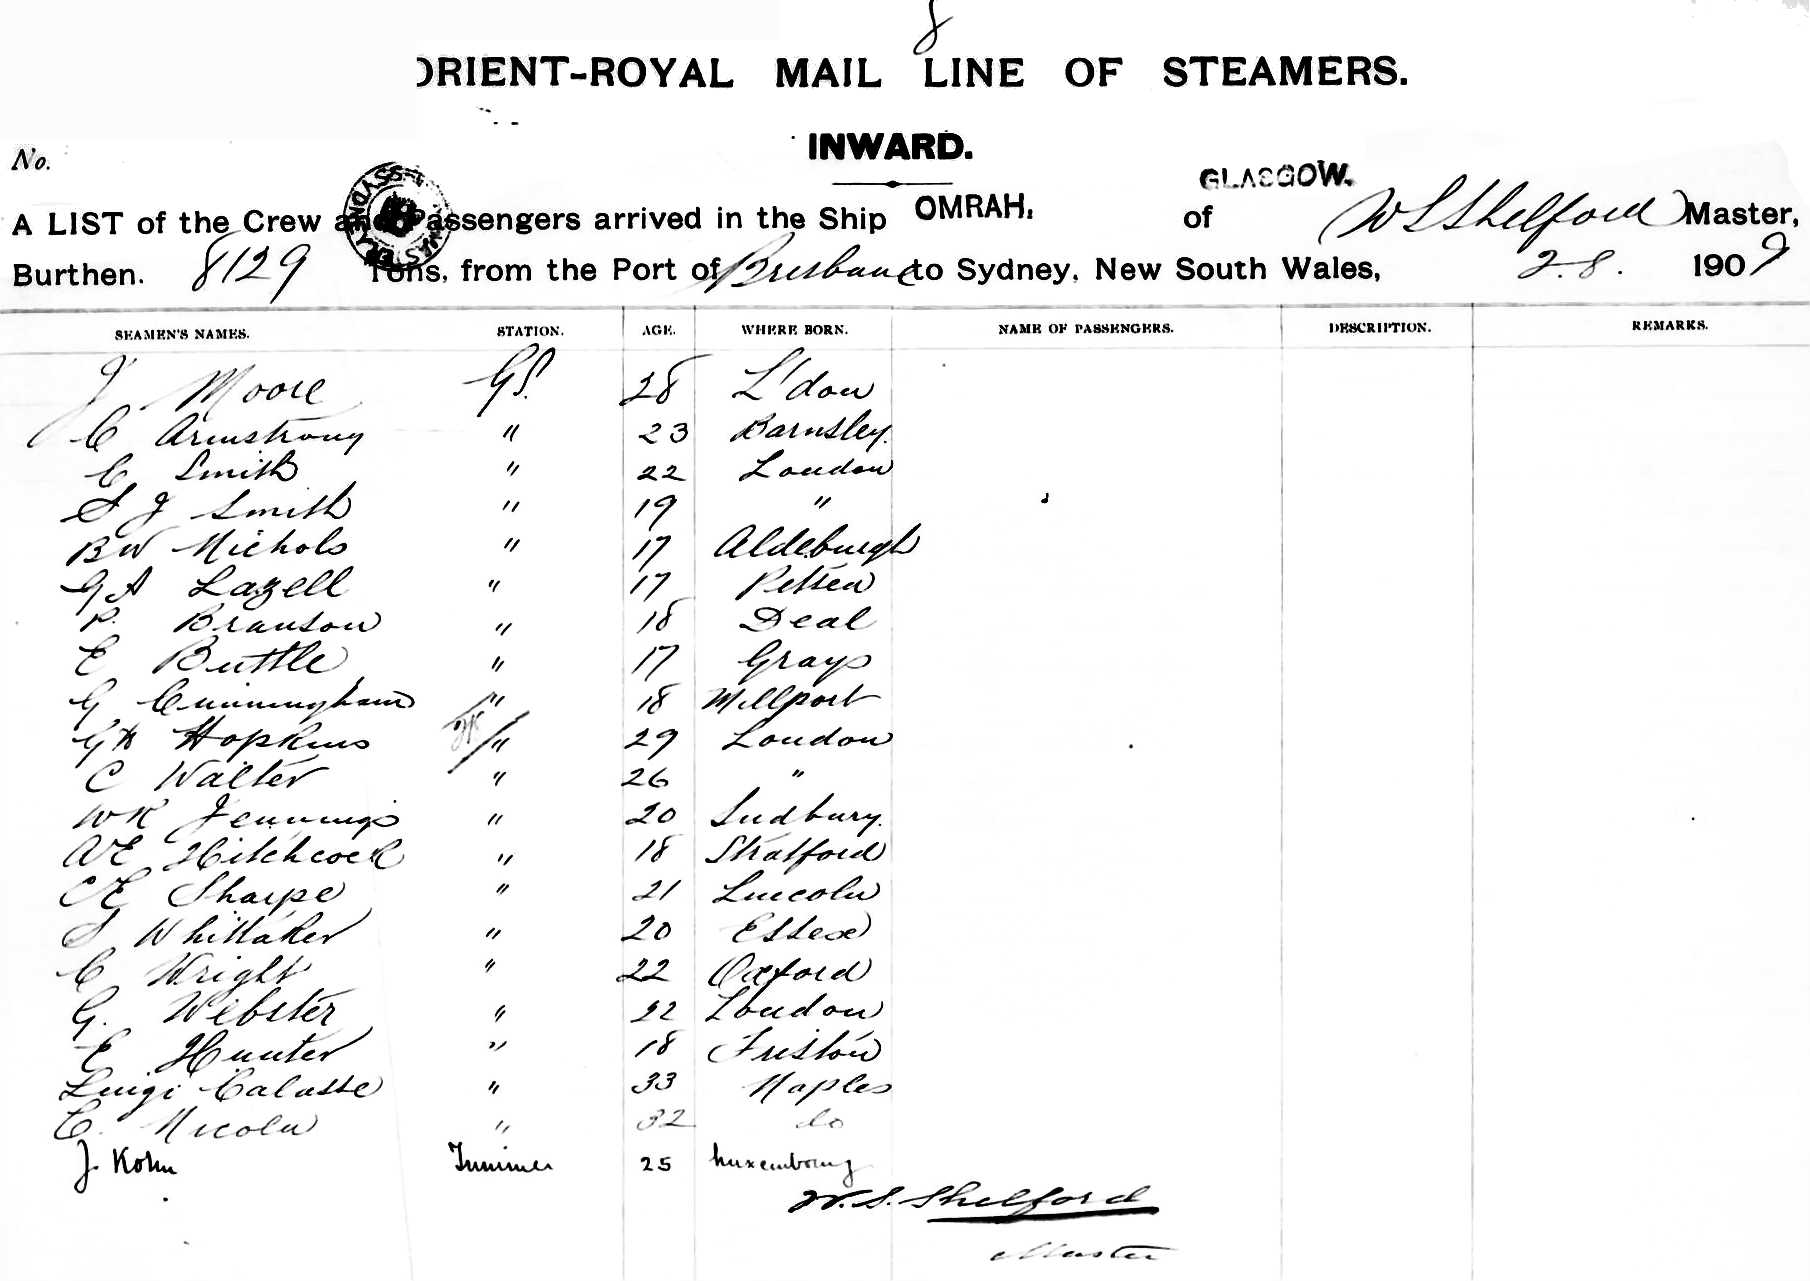 8
ORIENT-ROYAL MAIL LINE OF STEAMERS.
INWARD.
No.
GLASGOW.
A LIST of the Crew and Passengers arrived in the Ship OMRAH. of W S Shelford Master,
Burthen. 8129 Tons, from the Port of Brisbane to Sydney, New South Wales, 2.8. 1909
SEAMEN'S NAMES. STATION. AGE. WHERE BORN. NAME OF PASSENGERS. DESCRIPTION. REMARKS.
J Moore G.S. 28 L'don
C Armstrong " 23 Barnsley.
C Smith " 22 London
S J Smith " 19 "
BW Nichols " 17 Aldeburgh
G A Lazell " 17 
P. Branson " 18 Deal
E Buttle " 17 Grays
G Cunningham " 18 Millport
GH Hopkins " 29 London
C Walter " 26 "
WR Jennings " 20 Sudbury.
AE Hitchcock " 18 Stratford
CE Sharpe " 21 Lincoln
S Whittaker " 20 Essex
C Wright " 22 Oxford
G. Webster " 22 London
E Hunter " 18 Friston
Luigi " 33 Naples
C. " 32 do
J. Kohn 25 Luxembourg
W. S. Shelford
Master